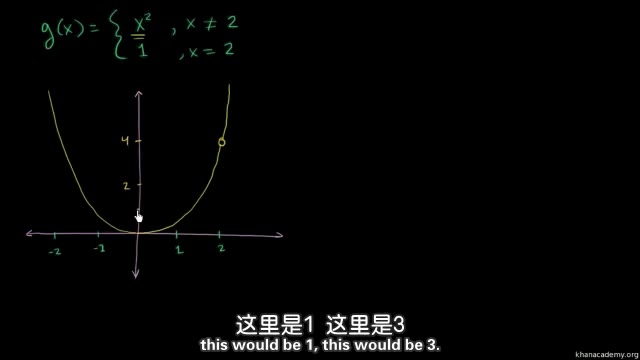 g(x) = { x² , x ≠ 2
1 , x = 2
4
2
-2 -1 1 2
这里是1 这里是3
this would be 1, this would be 3.
khanacademy.org